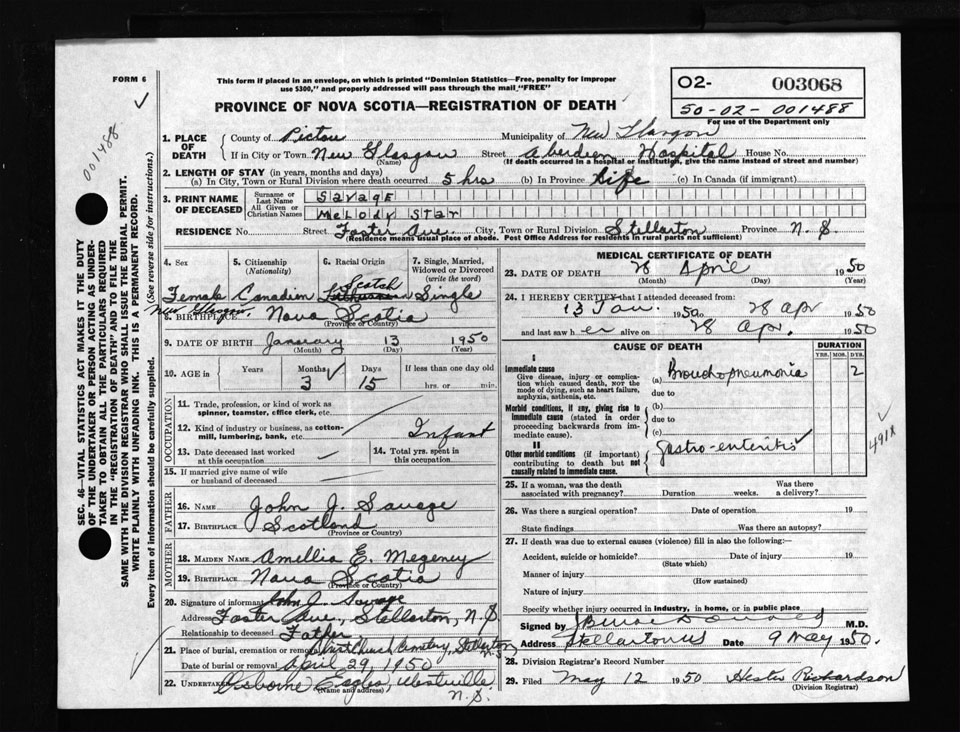 FORM 6
This form if placed in an envelope, on which is printed "Dominion Statistics—Free, penalty for improper
use $300," and properly addressed will pass through the mail "FREE"
PROVINCE OF NOVA SCOTIA—REGISTRATION OF DEATH
O2- 003068
50-02-001488
For use of the Department only
001488
SEC. 46—VITAL STATISTICS ACT MAKES IT THE DUTY
OF THE UNDERTAKER OR PERSON ACTING AS UNDER-
TAKER TO OBTAIN ALL THE PARTICULARS REQUIRED
IN THE "REGISTRATION OF DEATH" AND TO FILE THE
SAME WITH THE DIVISION REGISTRAR WHO SHALL ISSUE THE BURIAL PERMIT.
WRITE PLAINLY WITH UNFADING INK. THIS IS A PERMANENT RECORD.
Every item of information should be carefully supplied. (See reverse side for instructions.)
1. PLACE OF DEATH County of Pictou Municipality of New Glasgow
If in City or Town New Glasgow Street Aberdeen Hospital House No.
(Name) (If death occurred in a hospital or institution, give the name instead of street and number)
2. LENGTH OF STAY (in years, months and days)
(a) In City, Town or Rural Division where death occurred 5 hrs (b) In Province Life (c) In Canada (if immigrant)
3. PRINT NAME OF DECEASED Surname or Last Name Savage
All Given or Christian Names Melody Star
RESIDENCE No. Street Foster Ave. City, Town or Rural Division Stellarton Province N.S.
(Residence means usual place of abode. Post Office Address for residents in rural parts not sufficient)
4. Sex 5. Citizenship (Nationality) 6. Racial Origin 7. Single, Married, Widowed or Divorced (write the word)
Scotch
Female Canadian Single
New Glasgow,
8. BIRTHPLACE Nova Scotia
(Province or Country)
9. DATE OF BIRTH January 13 1950
(Month) (Day) (Year)
10. AGE in Years Months Days If less than one day old
3 15 hrs. or min.
OCCUPATION
11. Trade, profession, or kind of work as spinner, teamster, office clerk, etc.
12. Kind of industry or business, as cotton-mill, lumbering, bank, etc. Infant
13. Date deceased last worked at this occupation 14. Total yrs. spent in this occupation
15. If married give name of wife or husband of deceased
FATHER
16. Name John J. Savage
17. Birthplace Scotland
(Province or Country)
MOTHER
18. Maiden Name Amellia E. Megeney
19. Birthplace Nova Scotia
(Province or Country)
20. Signature of informant John J. Savage
Address Foster Ave., Stellarton, N.S
Relationship to deceased Father
21. Place of burial, cremation or removal Christ Church Cemetery, Stellarton, N.S
Date of burial or removal April 29, 1950
22. Undertaker Osborne Eagles, Westville N.S.
(Name and address)
MEDICAL CERTIFICATE OF DEATH
23. DATE OF DEATH 28 April 1950
(Month) (Day) (Year)
24. I HEREBY CERTIFY that I attended deceased from:
13 Jan. 1950 28 apr 1950
and last saw her alive on 28 apr. 1950
CAUSE OF DEATH DURATION
YRS. MOS. DYS.
I
Immediate cause
Give disease, injury or complication which caused death, NOT the mode of dying, such as heart failure, asphyxia, asthenia, etc.
(a) Broncho pneumonia 2
due to
Morbid conditions, if any, giving rise to immediate cause (stated in order proceeding backwards from immediate cause).
(b)
due to
(c)
II
Other morbid conditions (if important) contributing to death but not causally related to immediate cause.
Gastro-enteritis
491x
25. If a woman, was the death associated with pregnancy? Duration weeks. Was there a delivery?
26. Was there a surgical operation? Date of operation 19
State findings Was there an autopsy?
27. If death was due to external causes (violence) fill in also the following:—
Accident, suicide or homicide? Date of injury 19
(State which)
Manner of injury
(How sustained)
Nature of injury
Specify whether injury occurred in industry, in home, or in public place
Signed by M.D.
Address Stellarton NS Date 9 May 1950.
28. Division Registrar's Record Number
29. Filed May 12 1950 Hester Richardson
(Division Registrar)